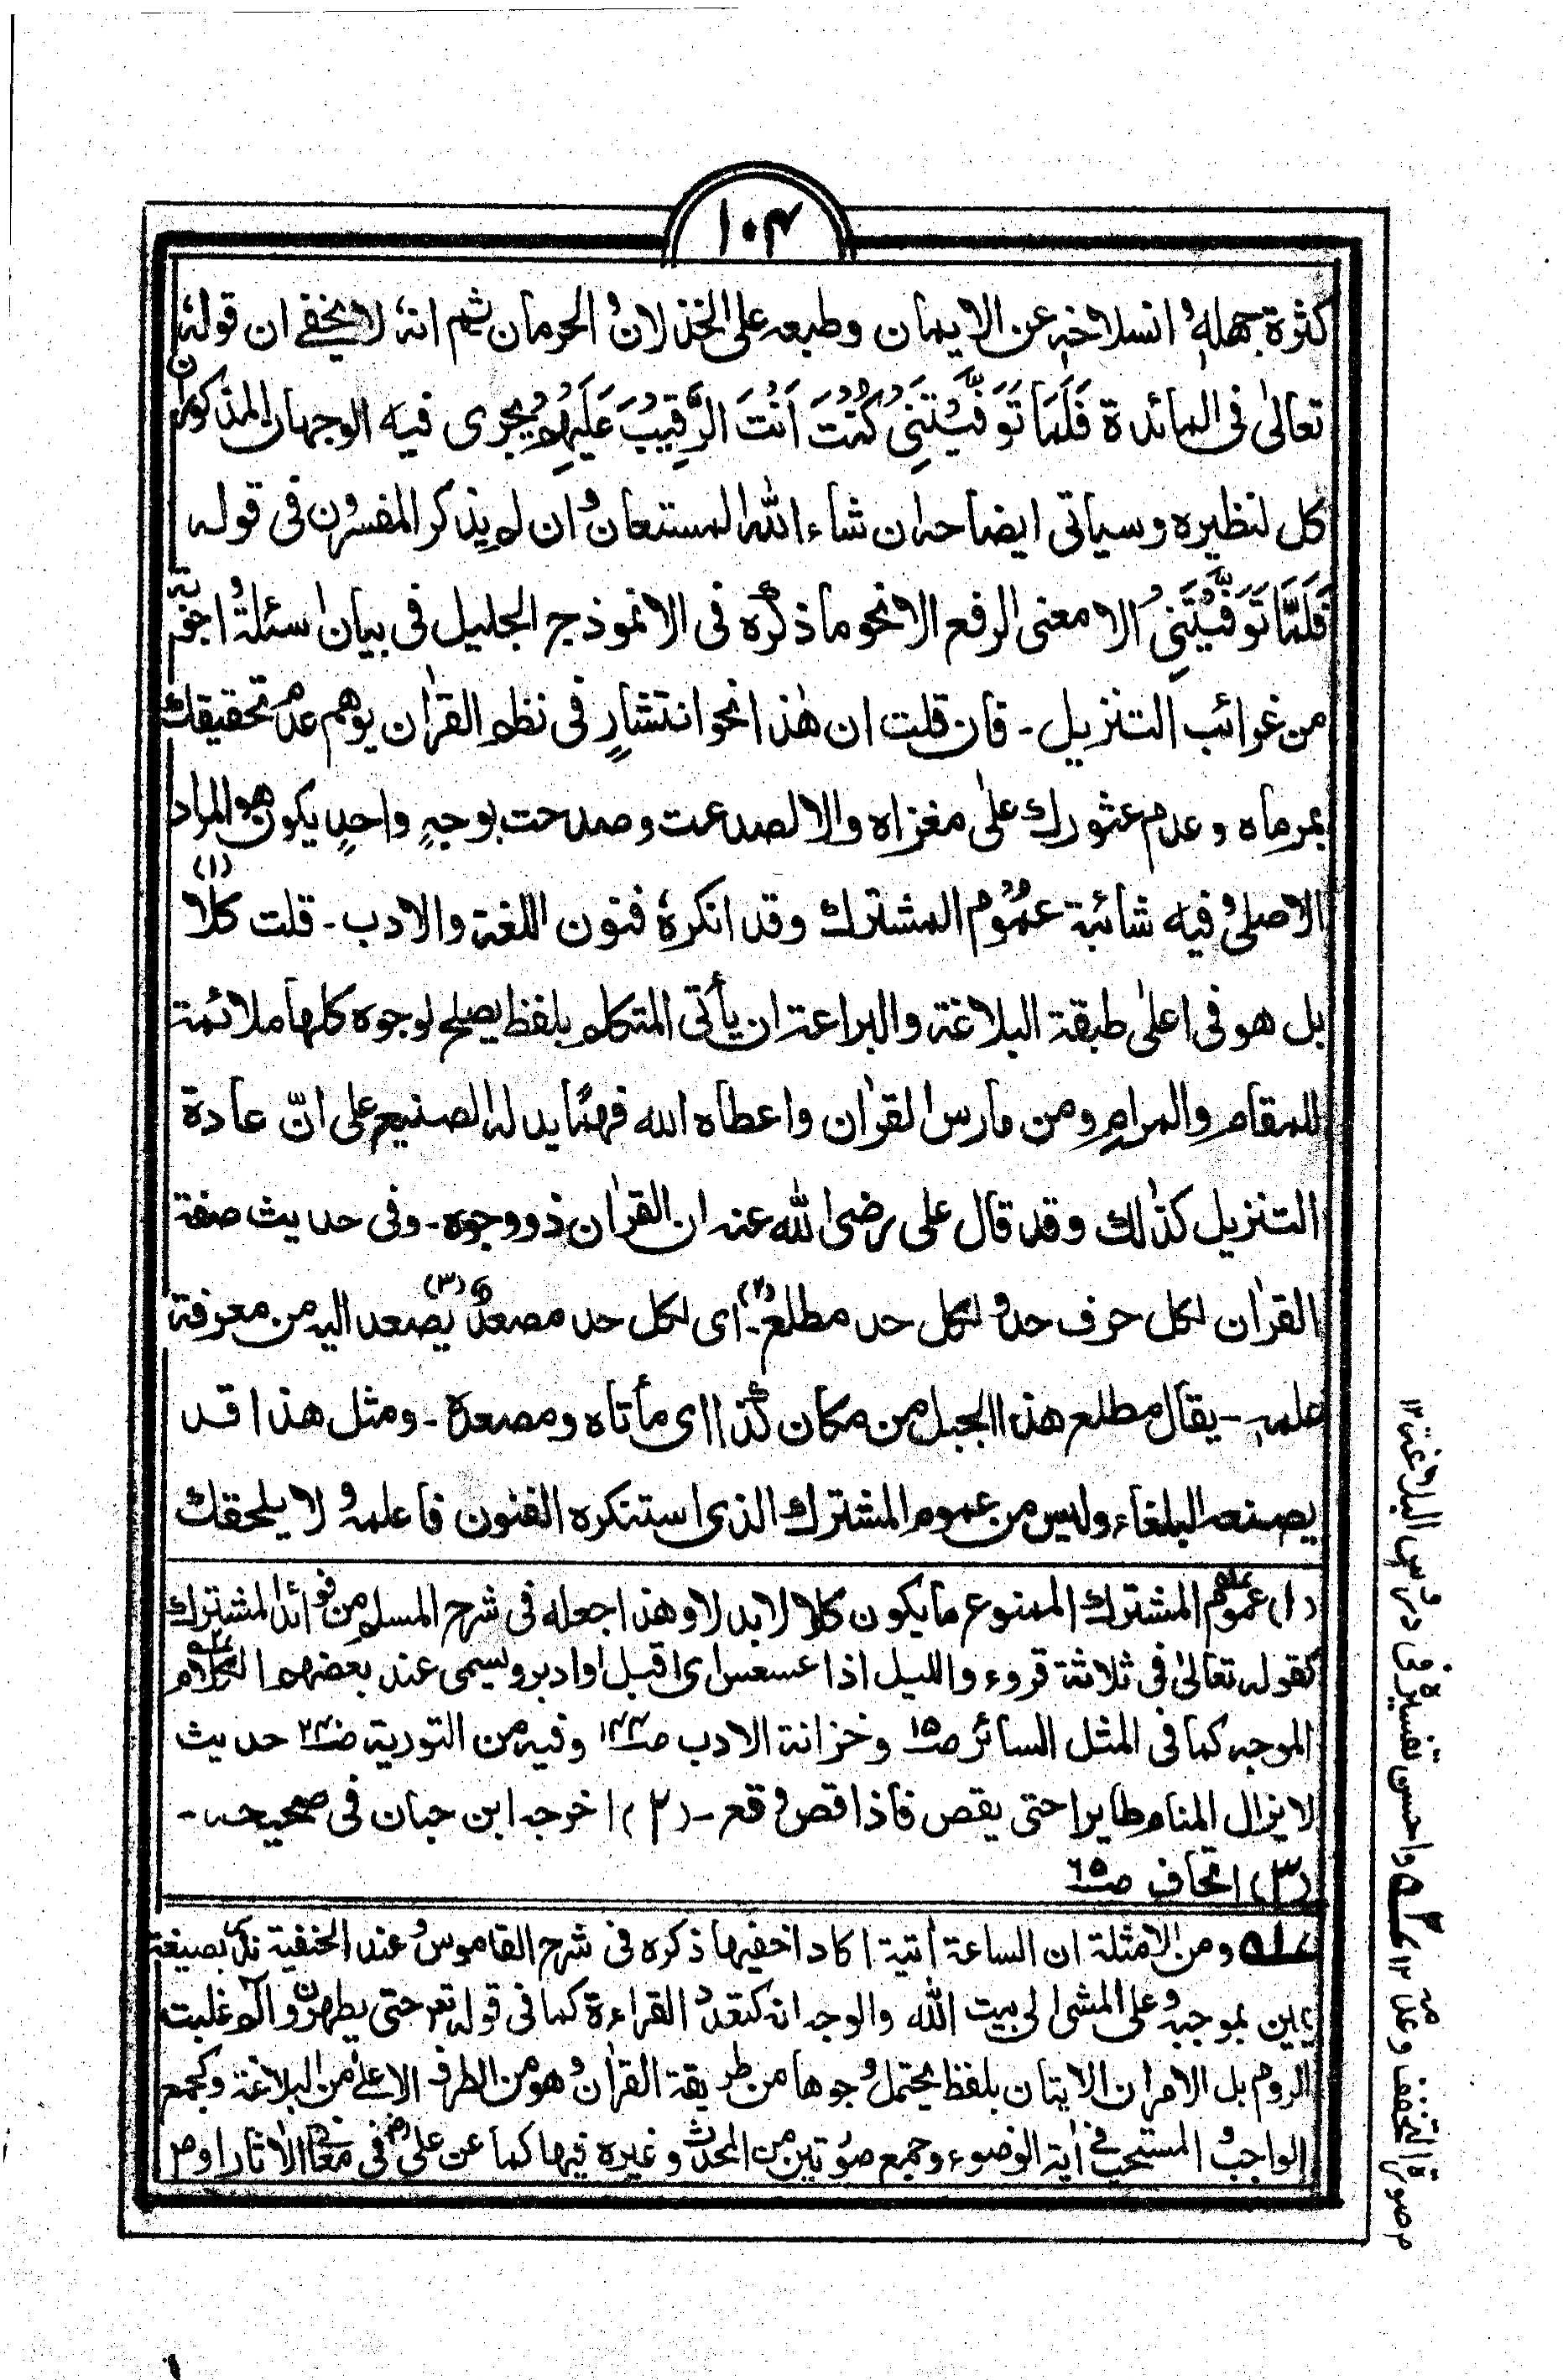 ۱۰۴
كثرة جهله و انسلاخه عن الايمان وطبعه على الخذلان و الحرمان ثم انه لا يخفے ان قوله
تعالىٰ فى المائدة فَلَمَّا تَوَفَّيْتَنِىْ كُنْتَ اَنْتَ الرَّقِيْبَ عَلَيْهِمْ يجرى فيه الوجهان المذكوران
كل لنظيره وسياتى ايضاحه ان شاء الله المستعان و ان لم يذكر المفسرون فى قوله
فَلَمَّا تَوَفَّيْتَنِىْ الا معنى الرفع الا نحو ما ذكره فى الانموذج الجليل فى بيان اسئلة و اجوبة
من غرائب التنزيل ۔ فان قلت ان هٰذا نحو انتشارٍ فى نظم القراٰن يوهم عدم تحقيقك
بمرماه و عدم عثورك علىٰ مغزاه والا لصدعت وصدحت بوجهٍ واحدٍ يكون هو المراد
الاصلى و فيه شائبة عموم المشترك وقد انكره فنون اللغة والادب ۔ قلت كلا (۱)
بل هو فى اعلىٰ طبقة البلاغة والبراعة ان يأتى المتكلم بلفظ يصلح لوجوه كلها ملائمة
للمقام والمرام ومن مارس القراٰن واعطاه الله فهمًا يدله الصنيع على انّ عادة
التنزيل كذٰلك وقد قال على رضى الله عنه ان القراٰن ذو وجوه ۔ وفى حديث صفة
القراٰن لكل حرف حد و لكل حد مطلع (۲) ۔ اى لكل حد مصعد (۳) يصعد اليه من معرفة
علمه ۔ يقال مطلع هذا الجبل من مكان كذا اى مأتاه ومصعده ۔ ومثل هذا قد
يصنعه البلغاء وليس من عموم المشترك الذى استنكره الفنون فاعلمه و لا يلحقك
(۱) عموم المشترك الممنوع ما يكون كلا لا بدلا وهذا جعله فى شرح المسلم من فوائد المشترك
كقوله تعالىٰ فى ثلاثة قروء والليل اذا عسعس اى اقبل او ادبر ويسمى عند بعضهم الكلام
الموجه كما فى المثل السائر ص۱۵ وخزانة الادب وفيه من التورية حديث
لا يزال المنام طايرا حتى يقص فاذا قص وقع ۔ (۲) اخرجه ابن حبان فى صحيحه ۔
(۳) اتحاف ص۶۵
ومن الامثلة ان الساعة اٰتية اكاد اخفيها ذكره فى شرح القاموس و عند الحنفية نذر بصيغة
يمين بموجبه و على المشى الى بيت الله والوجه انه كتعدد القراءة كما فى قوله تعم حتى يطهرن و الٓم غلبت
الروم بل الامر ان الاتيان بلفظ يحتمل وجوها من طريقة القراٰن و هو من الطرف الاعلے من البلاغة وكجمع
الواجب و المستحب فے اٰية الوضوء وجمع صورتين من المحدث وغيره فيها كما عن على فى الاٰثار اوص
م صورة التخفف وعلى ۱۲ واحسن تفسيره فى دروس البلاغة ۱۲